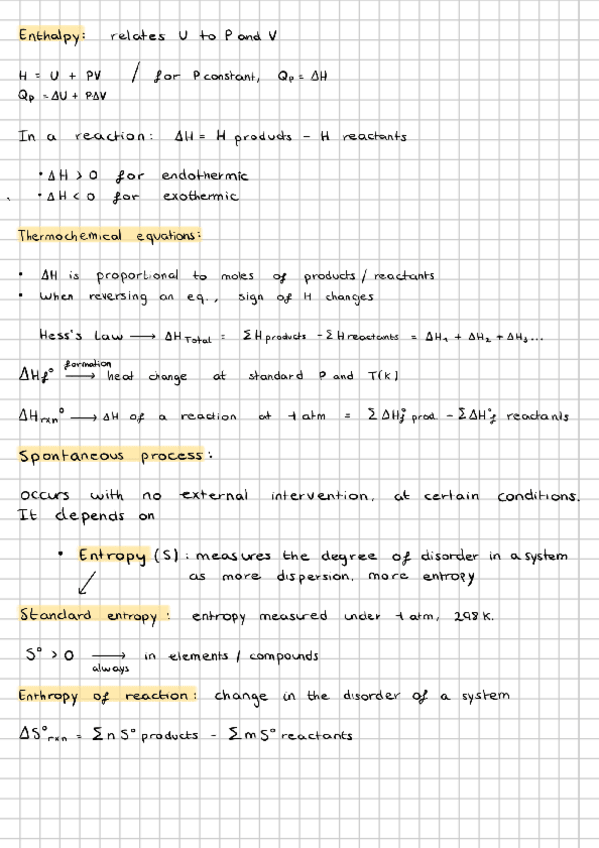 Enthalpy: relates U to P and V
H = U + PV / for P constant, Qp = ΔH
Qp = ΔU + PΔV
In a reaction: ΔH = H products - H reactants
• ΔH > 0 for endothermic
• ΔH < 0 for exothermic
Thermochemical equations:
• ΔH is proportional to moles of products / reactants
• when reversing an eq., sign of H changes
Hess's Law → ΔH Total = ΣH products - ΣH reactants = ΔH₁ + ΔH₂ + ΔH₃...
ΔHf° formation → heat change at standard P and T(K)
ΔHrxn° → ΔH of a reaction at 1 atm = ΣΔHf° prod. - ΣΔHf° reactants
Spontaneous process:
occurs with no external intervention, at certain conditions.
It depends on
• Entropy (S): measures the degree of disorder in a system
as more dispersion, more entropy
Standard entropy: entropy measured under 1 atm, 298 K.
S° > 0 → always in elements / compounds
Enthropy of reaction: change in the disorder of a system
ΔS°rxn = Σn S° products - Σm S° reactants